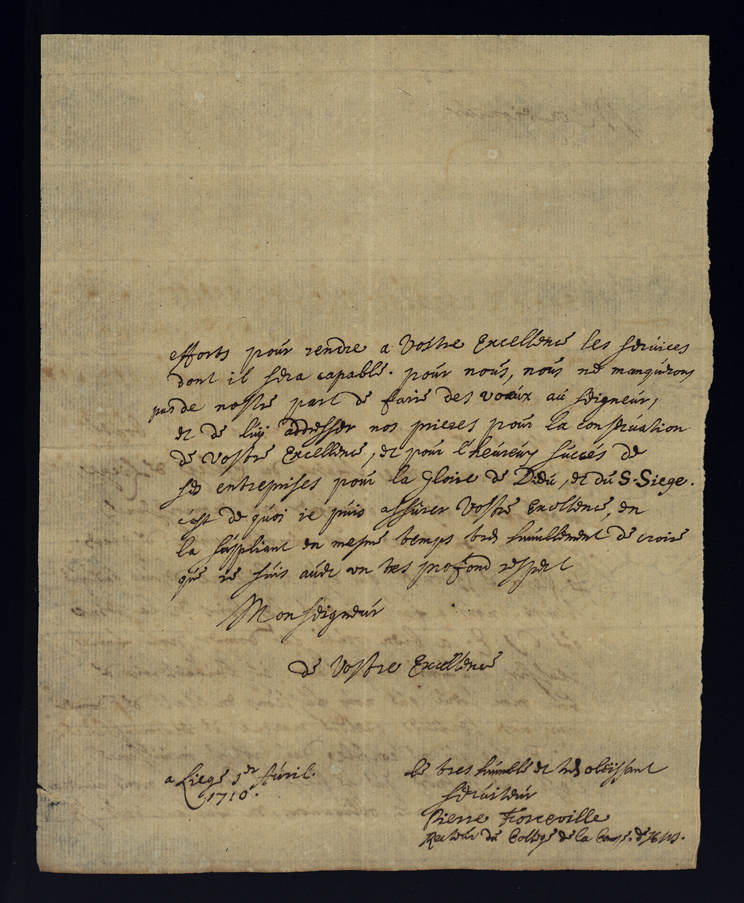 efforts pour rendre a Vostre Excellence les services
dont il sera capable. pour nous, nous ne manquerons
pas de nostre part de faire des vœux au Seigneur,
et de luy addresser nos prieres pour la conservation
de Vostre Excellence, et pour l'heureux succes de
ses entreprises pour la gloire de Dieu, et du S. Siege.
c'est de quoi ie puis assurer Vostre Excellence, en
la suppliant en mesme temps tres humblement de croire
que ie suis avec un tres profond respect
Monseigneur
de Vostre Excellence
a Liege 1er Avril.
1710.
le tres humble et tres obeissant
serviteur
Pierre
Recteur du College de la Comp. de Jesus.